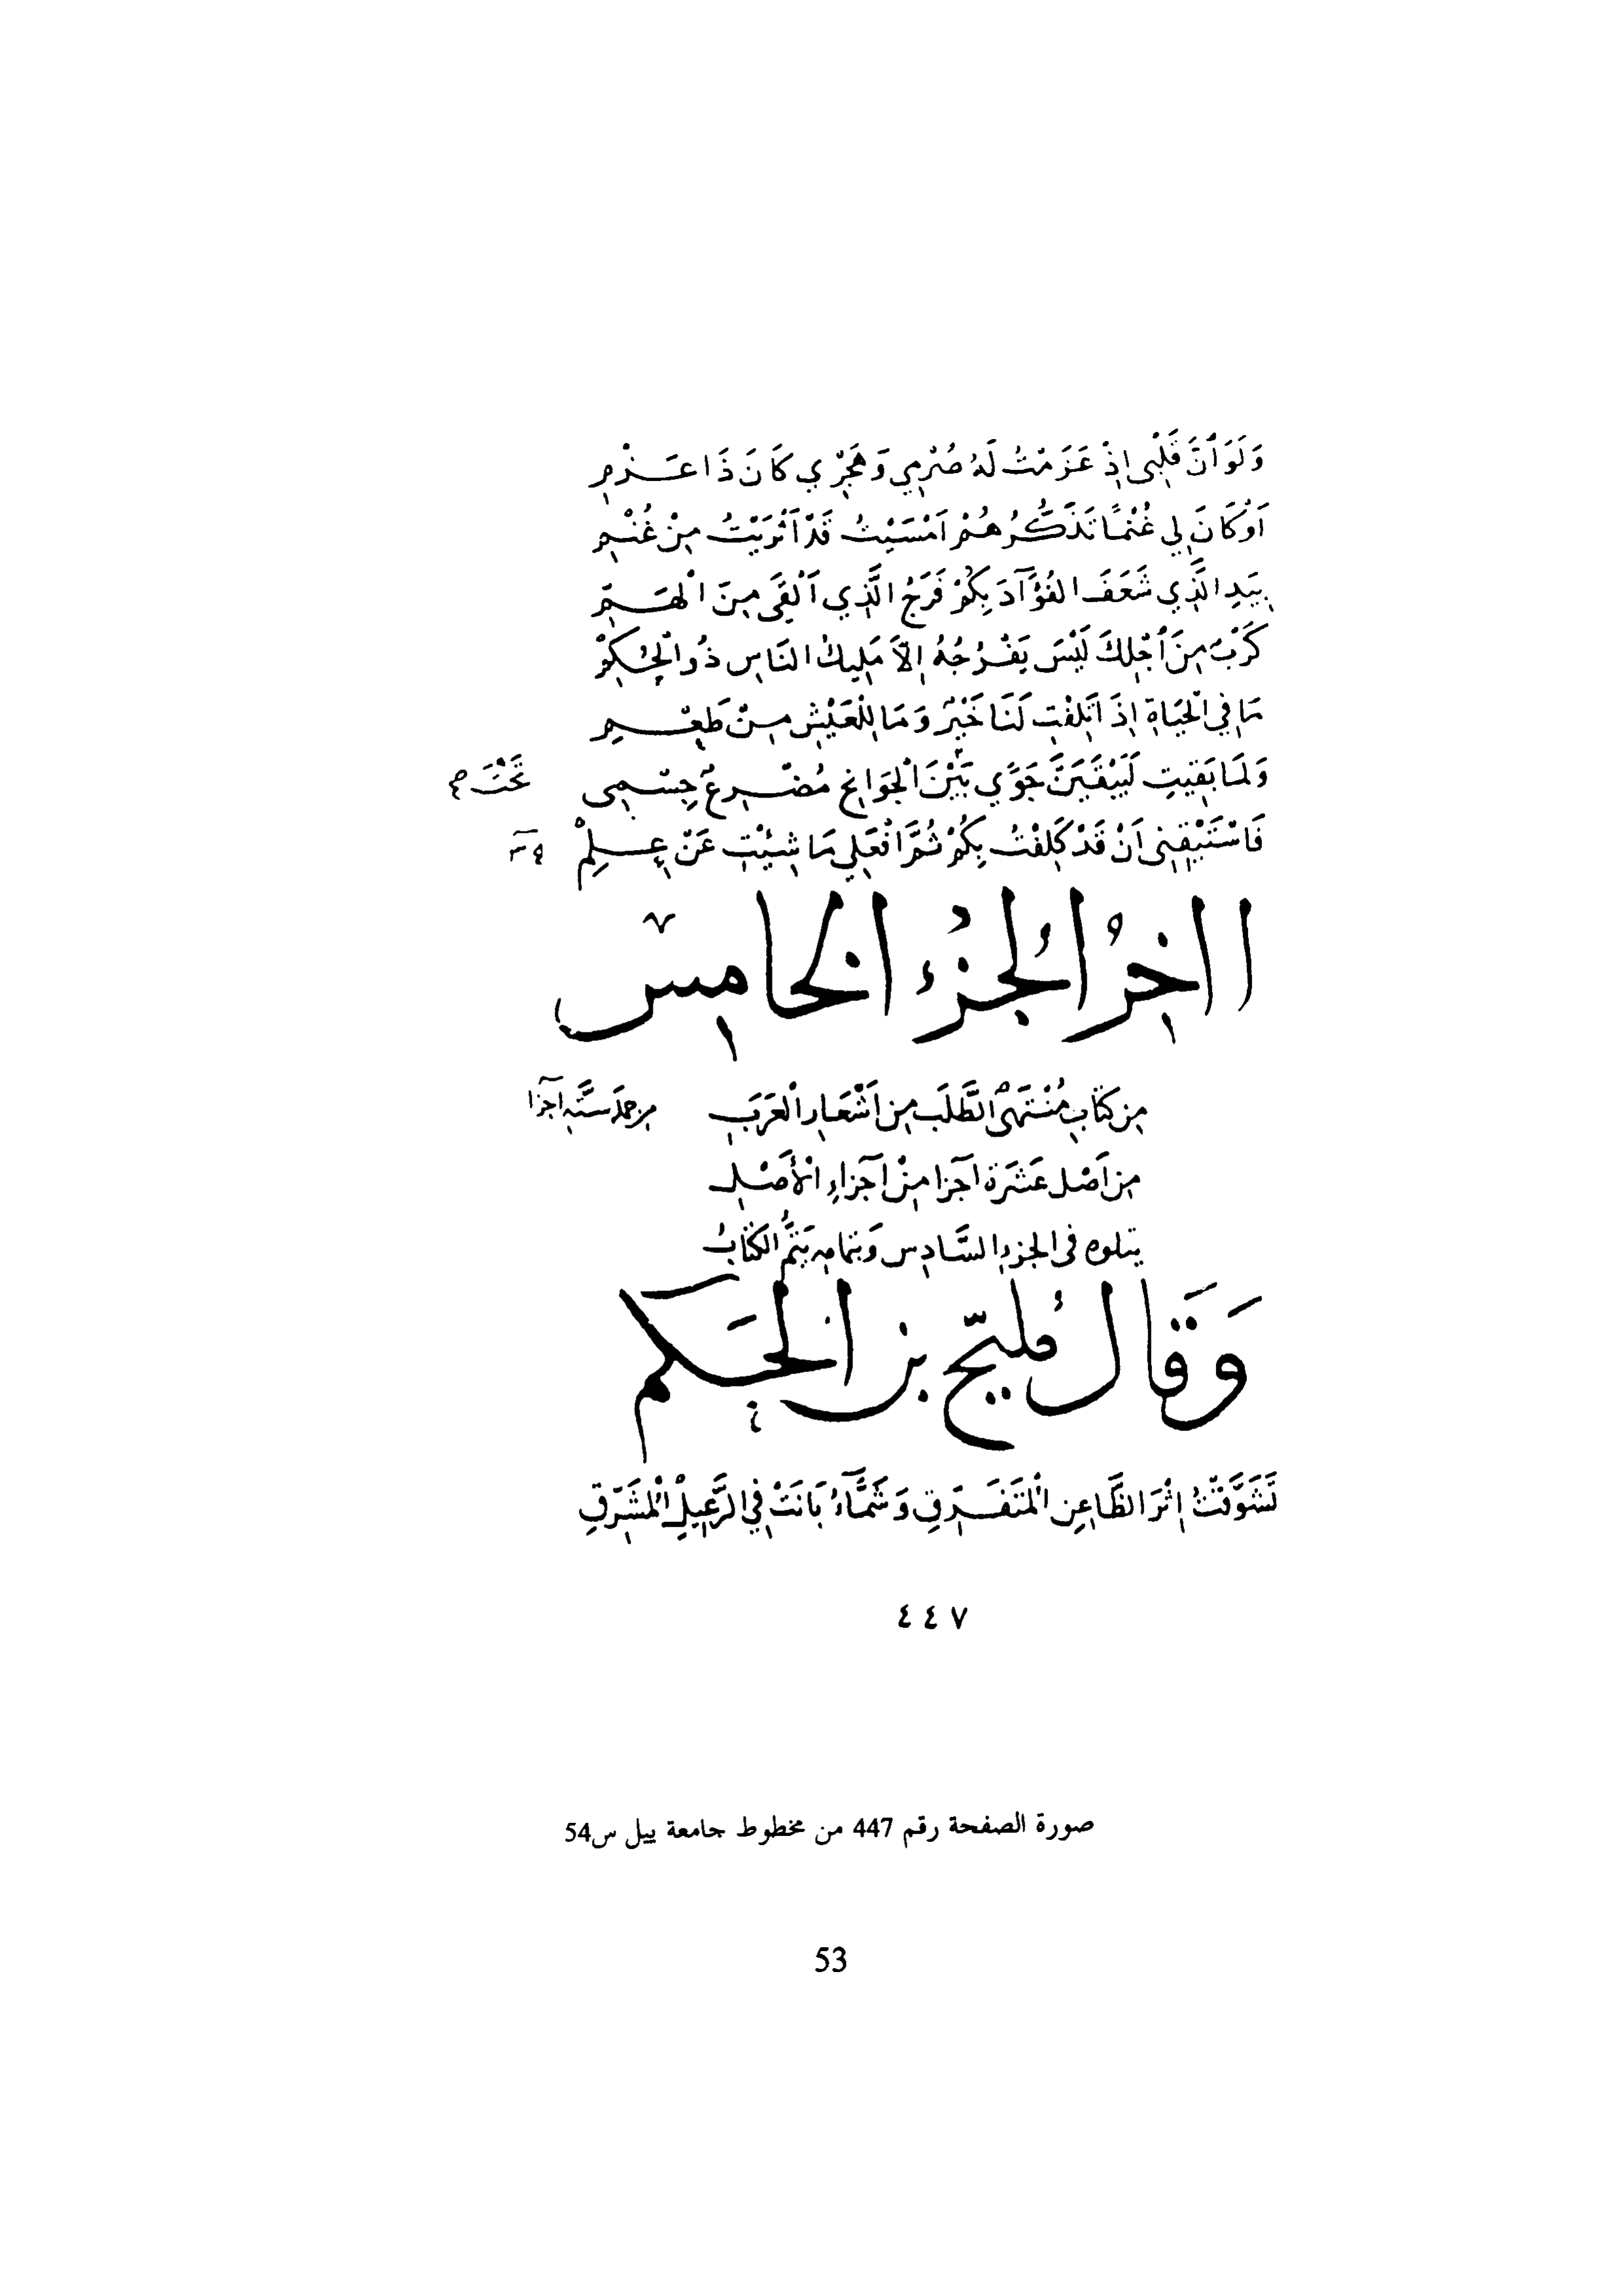 وَلَوَ أنَّ قَلْبِى إِذْ عَزَمْتُ لَهُ صُرْمِي وَهَجْرِي كَانَ ذَا عَزْمِ
أَوْكَانَ لِي غُنْمًا تَذَكُّرُهُمْ أَمْسَيْتُ قَدْ أَثْرَيْتُ مِنْ غُنْمِ
بِيَدِ الَّذِي شَعَفَ الفُؤَآدَ بِكُمْ فَرَجُ الَّذِي أَلْقَى مِنَ الْهَمِّ
كَرْبٌ مِنَ أجْلِكَ لَيْسَ يَفْرُجُهُ إِلاَّ مَلِيكُ النَّاسِ ذُو الْحُكْمِ
مَا فِي الْحَيَاةِ إِذَ اتْلَفْتِ لَنَا خَيْرٌ وَمَا لِلْعَيْشِ مِنْ طَعْمِ
وَلَمَا بَقِيتِ لَيَبْقَيَنَّ جَوًى بَيْنَ الْجَوَانِحِ مُضْرِعٌ جِسْمِى تَحْتَ
فَاسْتَيْقِنِى أَنْ قَدْ كَلِفْتُ بِكُمْ ثُمَّ افْعَلِي مَا شِيْتِ عَنْ عِلْمِ
ااخِرُ الْجُزْء الخَامِسْ
مِن كِتَابِ مُنْتَهَى الطَّلَب مِن أَشْعَارِ الْعَرَبِ من جملة ستَّةِ أجزآ
مِن أَصْل عَشَرَة أَجزآ مِنْ أَجْزَآءِ الْأَصْلِ
يتلوه فى الجزءِ السَّادِس وَبتمامِهِ يَتمُّ الكتَابُ
وَقَالَ مُليَح بن الحَكم
تَشَوَّقْتُ إِثْرَ الظَّاعِنِ الْمُتَفَرِّقِ وَشَمَّآءُ بَانَتْ فِي الرَّعِيلِ الْمُشَرِّقِ
٤٤٧
صورة الصفحة رقم 447 من مخطوط جامعة ييل س54
53